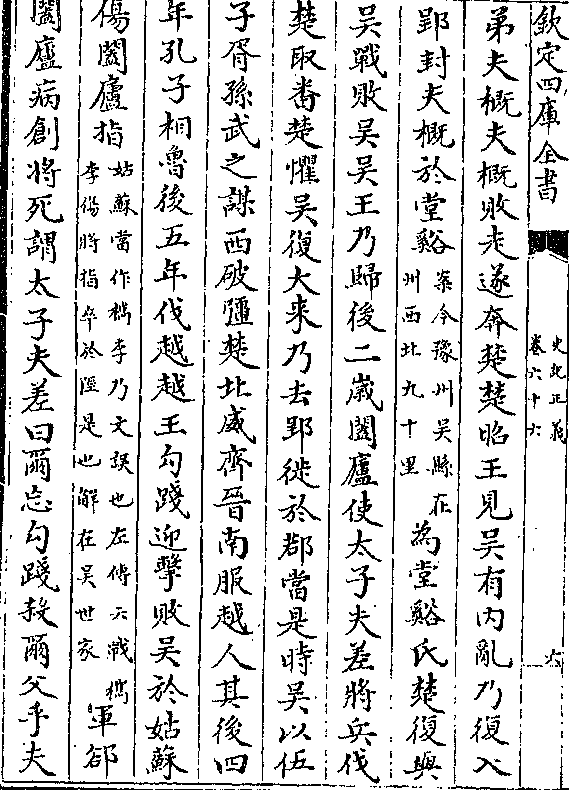 欽定四庫全書
史記正義
卷六十六
六
弟夫概夫概敗走遂奔楚楚昭王見吳有内亂乃復入
郢封夫概於堂谿案今豫州吳縣在州西北九十里為堂谿氏楚復與
吳戰敗吳吳王乃歸後二歲闔廬使太子夫差將兵伐
楚取番楚懼吳復大来乃去郢徙於鄀當是時吳以伍
子胥孫武之謀西破彊楚北威齊晉南服越人其後四
年孔子相魯後五年伐越越王勾踐迎擊敗吳於姑蘇
傷闔廬指姑蘇當作檇李乃文誤也左傳云戰檇李傷將指卒於陘是也解在吳世家軍郤
闔廬病創將死謂太子夫差曰爾忘勾踐殺爾父乎夫